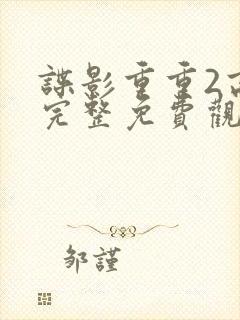 諜影重重2高
完整免費觀
鄒謹